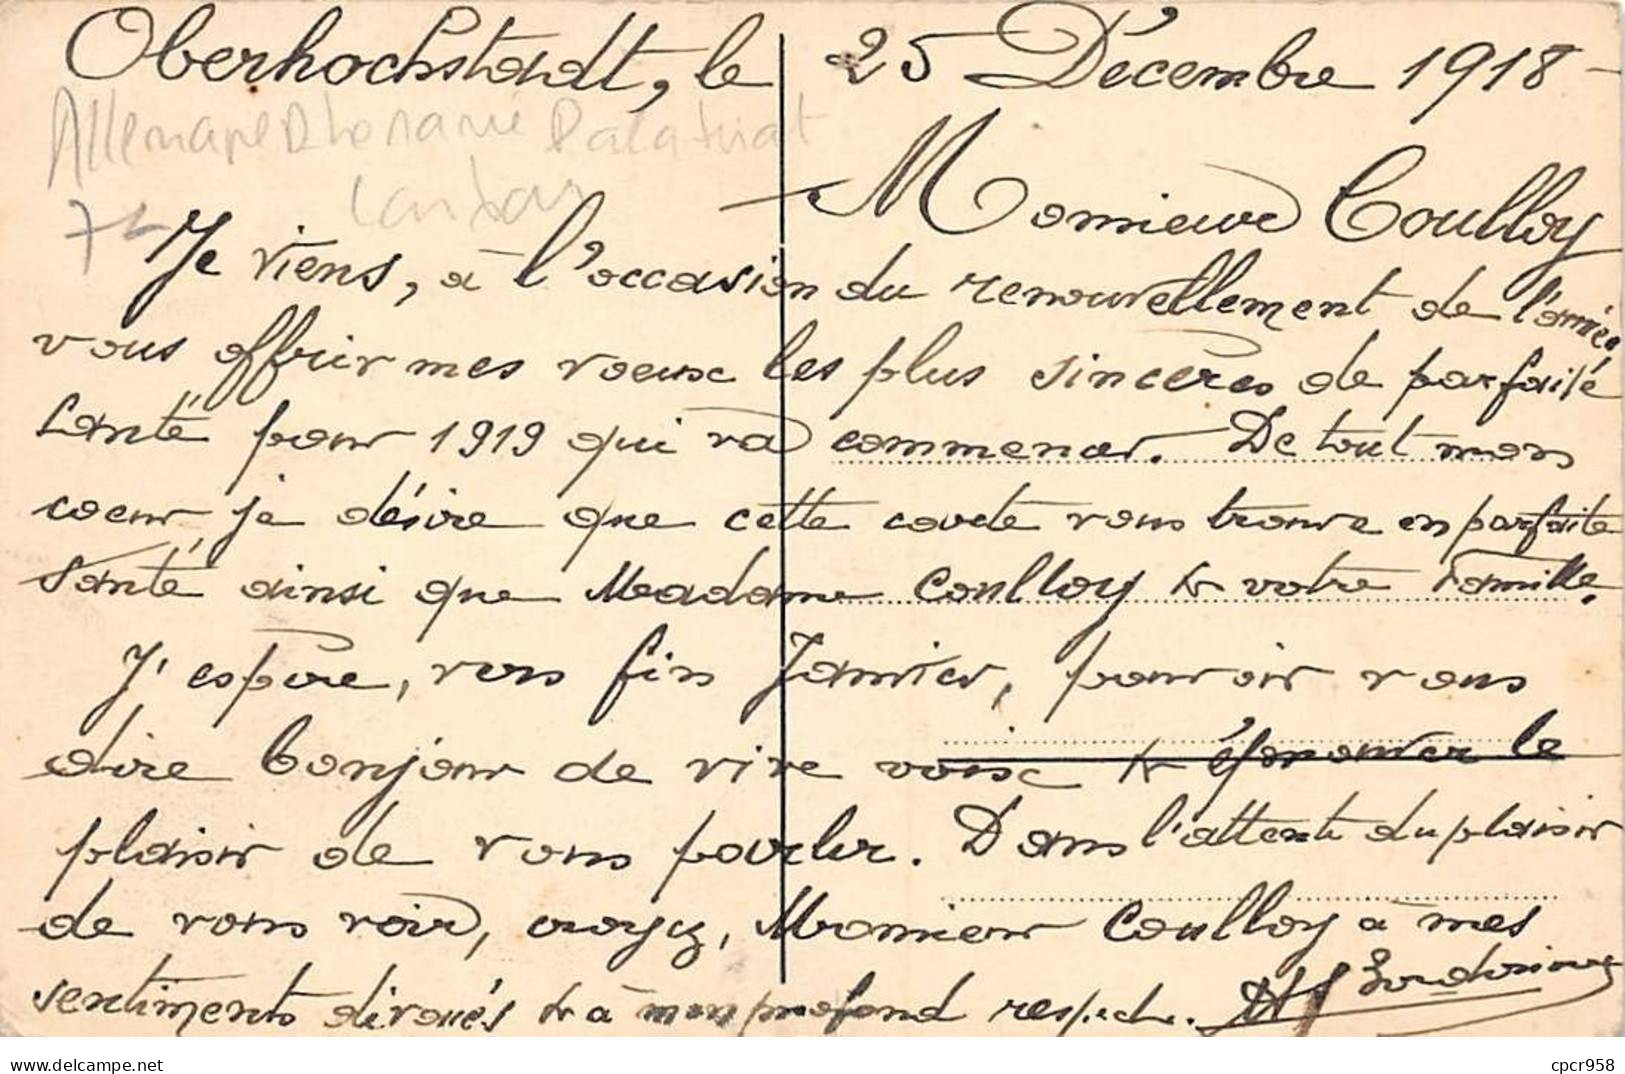 Oberhochstadt, le 25 Décembre 1918 -
Allemagne Rhenanie Palatinat
Landau
Monsieur Coulloy
Je viens, à l'occasion du renouvellement de l'année
vous offrir mes voeux les plus sincères de parfaite
santé pour 1919 qui va commencer. De tout mon
coeur je désire que cette carte vous trouve en parfaite
santé ainsi que Madame Coulloy & votre famille.
J'espère, vers fin Janvier, pouvoir vous
dire bonjour de vive voix & éprouver le
plaisir de vous parler. Dans l'attente du plaisir
de vous voir, croyez, Monsieur Coulloy à mes
sentiments dévoués & à mon profond respect.
cpcr958